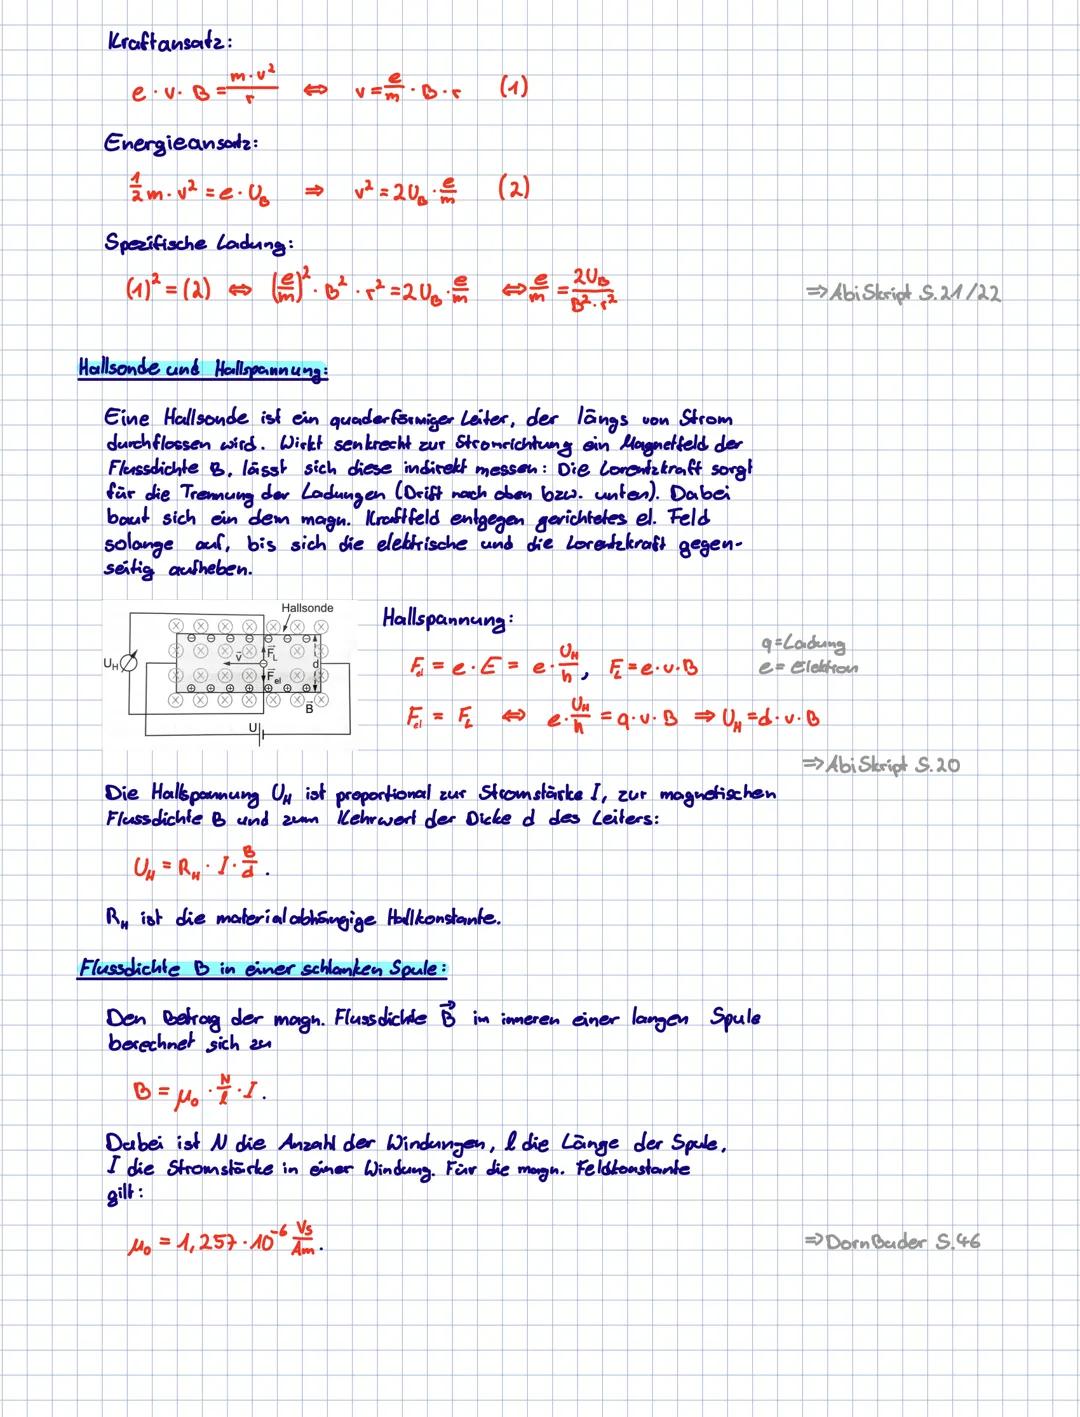 Kraftansatz:
e · v · B = m·v²/r ⇔ v = e/m · B · r (1)
Energieansatz:
1/2 m · v² = e · U_B ⇒ v² = 2U_B · e/m (2)
Spezifische Ladung:
(1)² = (2) ⇔ (e/m)² · B² · r² = 2U_B · e/m ⇔ e/m = 2U_B/B²·r²
⇒ AbiSkript S.21/22
Hallsonde und Hallspannung:
Eine Hallsonde ist ein quaderförmiger Leiter, der längs von Strom
durchflossen wird. Wirkt senkrecht zur Stromrichtung ein Magnetfeld der
Flussdichte B, lässt sich diese indirekt messen: Die Lorentzkraft sorgt
für die Trennung der Ladungen (Drift nach oben bzw. unten). Dabei
baut sich ein dem magn. Kraftfeld entgegen gerichtetes el. Feld
solange auf, bis sich die elektrische und die Lorentzkraft gegen-
seitig aufheben.
Hallsonde
U_H
v
F_L
F_el
d
B
U
Hallspannung:
q = Ladung
e = Elektron
F_el = e · E = e · U_H/h , F_L = e · v · B
F_el = F_L ⇔ e · U_H/h = q · v · B ⇒ U_H = d · v · B
⇒ AbiSkript S.20
Die Hallspannung U_H ist proportional zur Stromstärke I, zur magnetischen
Flussdichte B und zum Kehrwert der Dicke d des Leiters:
U_H = R_H · I · B/d .
R_H ist die materialabhängige Hallkonstante.
Flussdichte B in einer schlanken Spule:
Den Betrag der magn. Flussdichte B⃗ im inneren einer langen Spule
berechnet sich zu
B = μ₀ · N/l · I .
Dabei ist N die Anzahl der Windungen, l die Länge der Spule,
I die Stromstärke in einer Windung. Für die magn. Feldkonstante
gilt:
μ₀ = 1,257 · 10⁻⁶ Vs/Am .
⇒ DornBader S.46